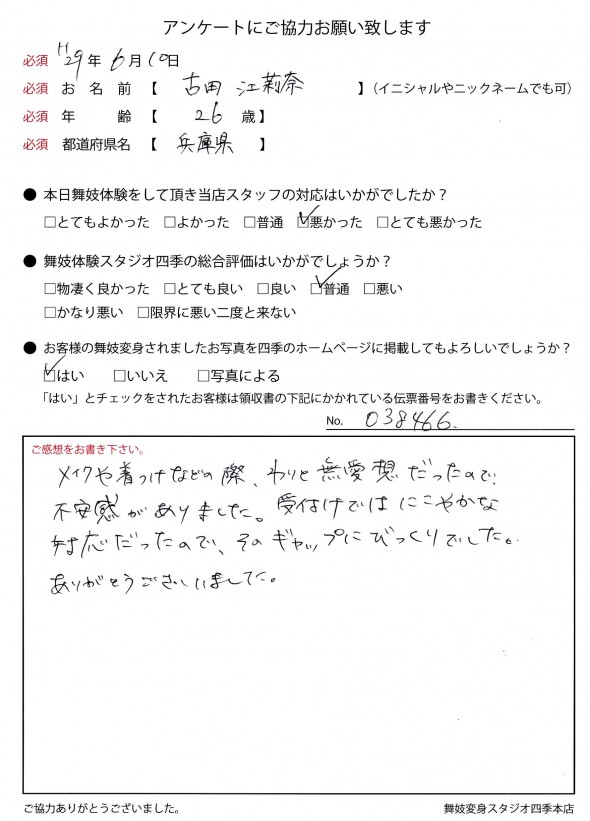 アンケートにご協力お願い致します
必須 H29年6月10日
必須 お名前【 古田 江莉奈 】(イニシャルやニックネームでも可)
必須 年齢【 26 歳】
必須 都道府県名【 兵庫県 】
● 本日舞妓体験をして頂き当店スタッフの対応はいかがでしたか?
□とてもよかった □よかった □普通 ☑悪かった □とても悪かった
● 舞妓体験スタジオ四季の総合評価はいかがでしょうか?
□物凄く良かった □とても良い □良い ☑普通 □悪い
□かなり悪い □限界に悪い二度と来ない
● お客様の舞妓変身されましたお写真を四季のホームページに掲載してもよろしいでしょうか?
☑はい □いいえ □写真による
「はい」とチェックをされたお客様は領収書の下記にかかれている伝票番号をお書きください。
No. 038466.
ご感想をお書き下さい。
メイクや着つけなどの際、わりと無愛想だったので、
不安感がありました。受付けではにこやかな
対応だったので、そのギャップにびっくりでした。
ありがとうございました。
ご協力ありがとうございました。
舞妓変身スタジオ四季本店